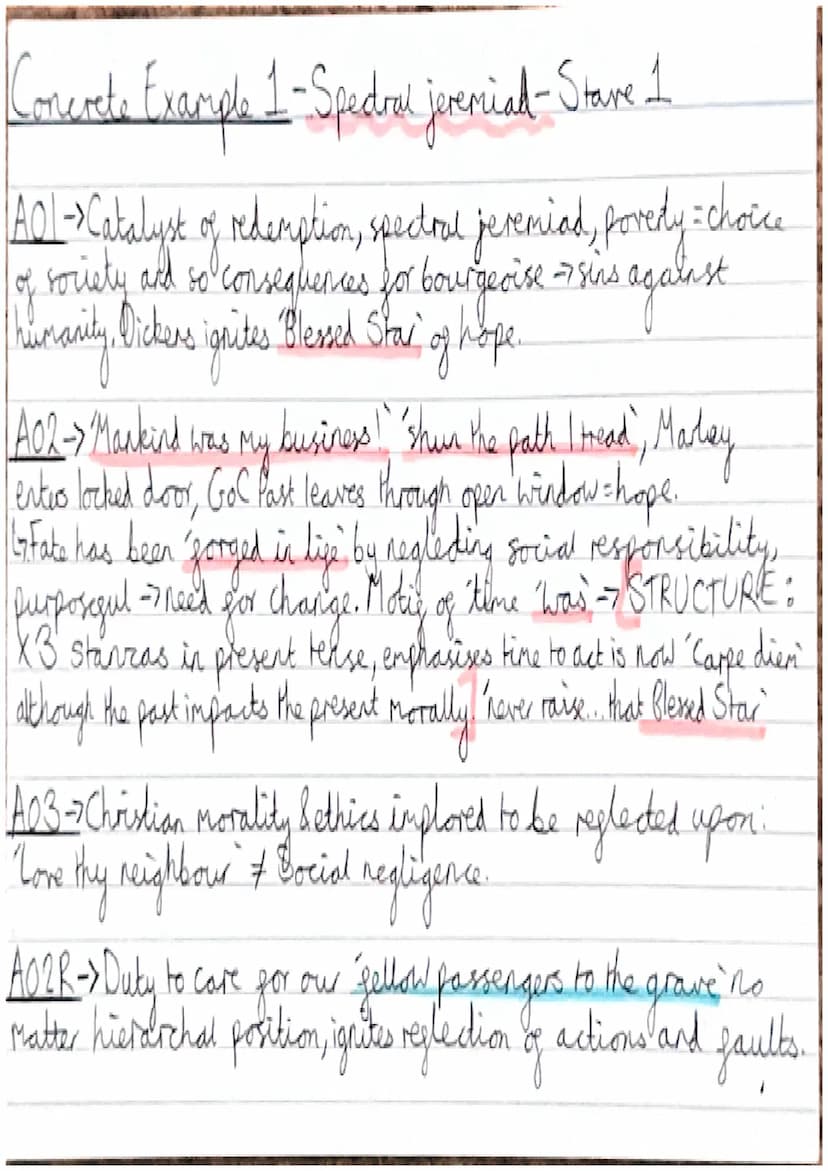 Concrete Example 1 - Spectral jeremiad - Stave 1
AO1 → Catalyst of redemption, spectral jeremiad, poverty = choice
of society and so consequences for bourgeoise → sins against
humanity. Dickens ignites 'Blessed Star' of hope.
AO2 → 'Mankind was my business!' 'shun the path I tread', Marley
enters locked door, GoC Past leaves through open window = hope.
↳ Fate has been 'forged in life' by neglecting social responsibility,
purposeful → need for change. Motif of 'time 'was' → [STRUCTURE:
x3 stanzas in present tense, emphasises time to act is now 'Carpe diem'
although the past impacts the present morally.] 'never raise... that Blessed Star'
AO3 → Christian morality & ethics implored to be reflected upon:
'Love thy neighbour' ≠ Social negligence.
AO2R → Duty to care for our 'fellow passengers to the grave' no
matter hierarchal position, ignites reflection of actions and faults.